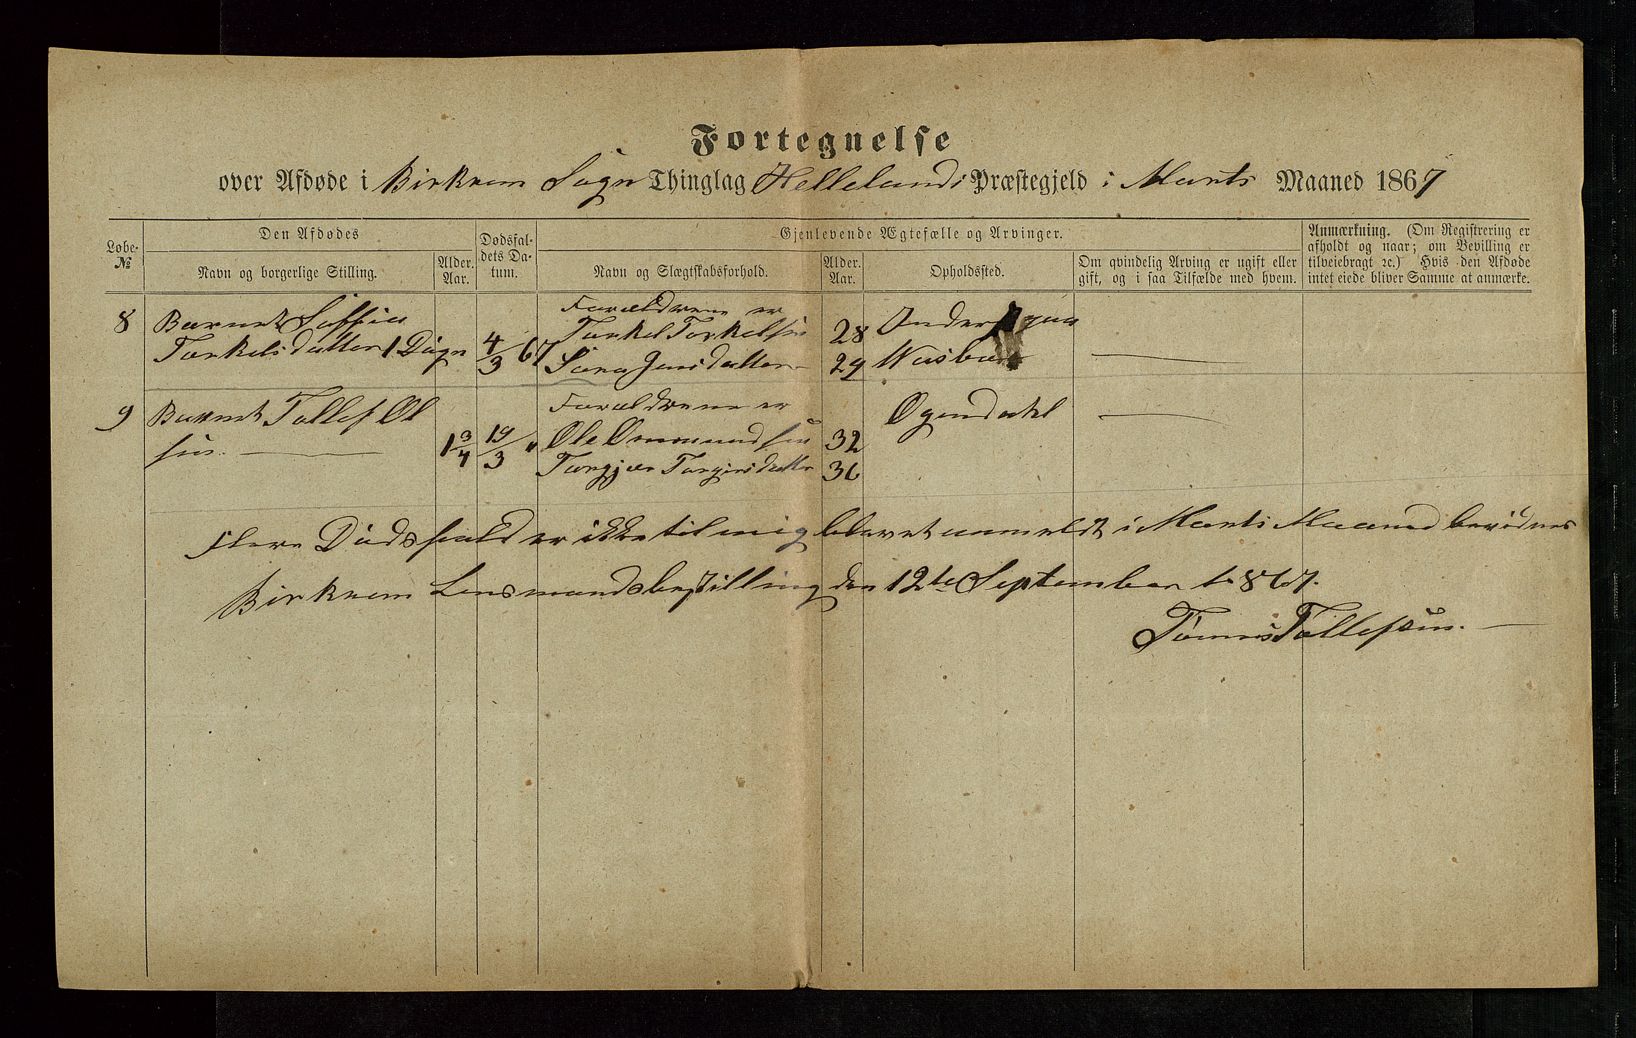 Fortegnelse
over Afdøde i Birkrem Sogn Thinglag Hellelands Præstegjeld i Marts Maaned 1867
Løbe-
№
Den Afdødes
Navn og borgerlige Stilling.
Alder.
Aar.
Dødsfal-
dets Da-
tum.
Gjenlevende Ægtefælle og Arvinger.
Navn og Slægtskabsforhold.
Alder.
Aar.
Opholdssted.
Om qvindelig Arving er ugift eller
gift, og i saa Tilfælde med hvem.
Anmærkning. (Om Registrering er
afholdt og naar; om Bevilling er
tilveiebragt ꝛc.) Hvis den Afdøde
intet eiede bliver Samme at anmærke.
8 Barnet Soffia
Torkelsdatter 1 Døgn
4/3 67
Forældrene er
Torkel Torkelsen 28
Sara Jensdatter 29
9 Barnet Tollef Ol
sen.
1 3/4
19/3 "
Forældrene er
Ole Ommundsen 32
Torgjer Torgersdatter 36
Ogendahl
Flere Dødsfald er ikke til mig blevet anmeldt i Marts Maaned bevidnes
Birkrem Lensmandsbestilling den 12te September 1867.
Tønnes Tollefsen.